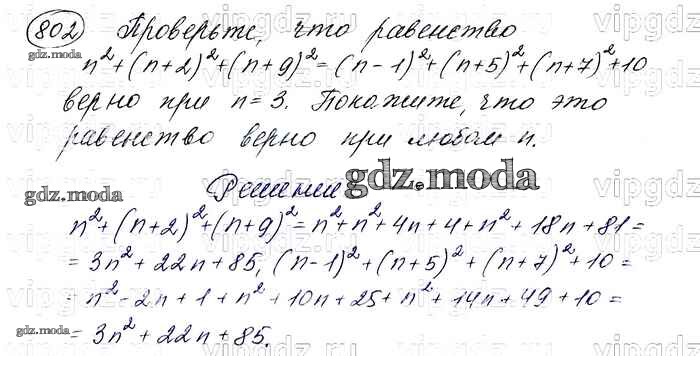 802 Проверьте, что равенство
n²+(n+2)²+(n+9)²=(n-1)²+(n+5)²+(n+7)²+10
верно при n=3. Покажите, что это
равенство верно при любом n.
Решение
gdz.moda
gdz.moda
n²+(n+2)²+(n+9)²=n²+n²+4n+4+n²+18n+81=
=3n²+22n+85, (n-1)²+(n+5)²+(n+7)²+10=
=n²-2n+1+n²+10n+25+n²+14n+49+10=
gdz.moda
=3n²+22n+85.